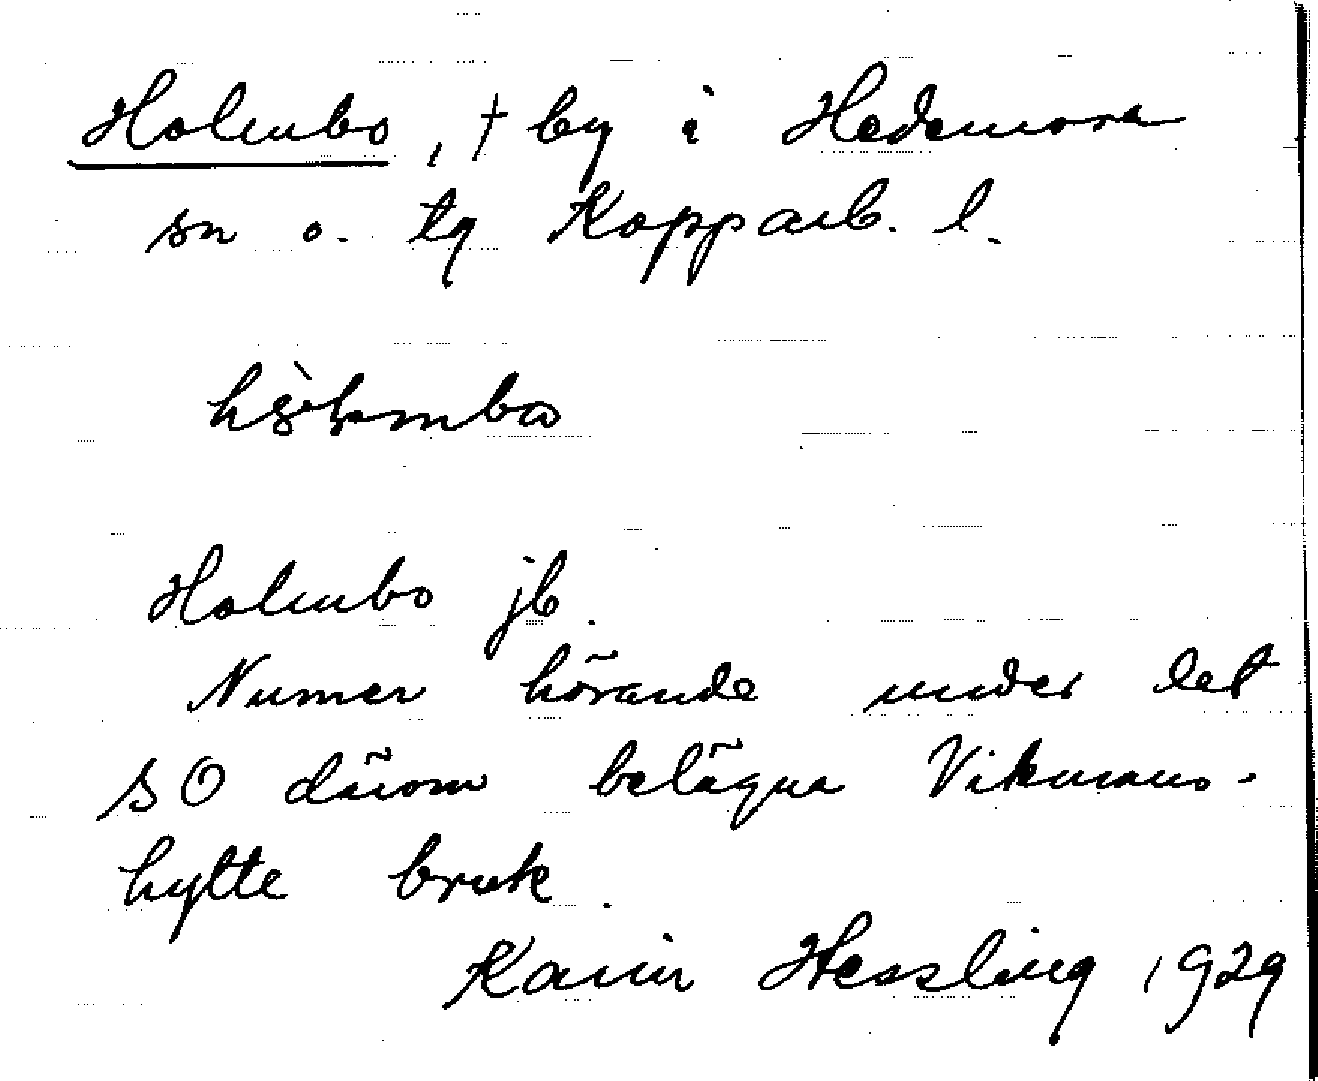 Holmbo, † by i Hedemora
sn o. tg Kopparb. l.
Holmbo jb.
Numer hörande under det
SO därom belägna Vikmans-
hytte bruk.
Karin Hessling 1929